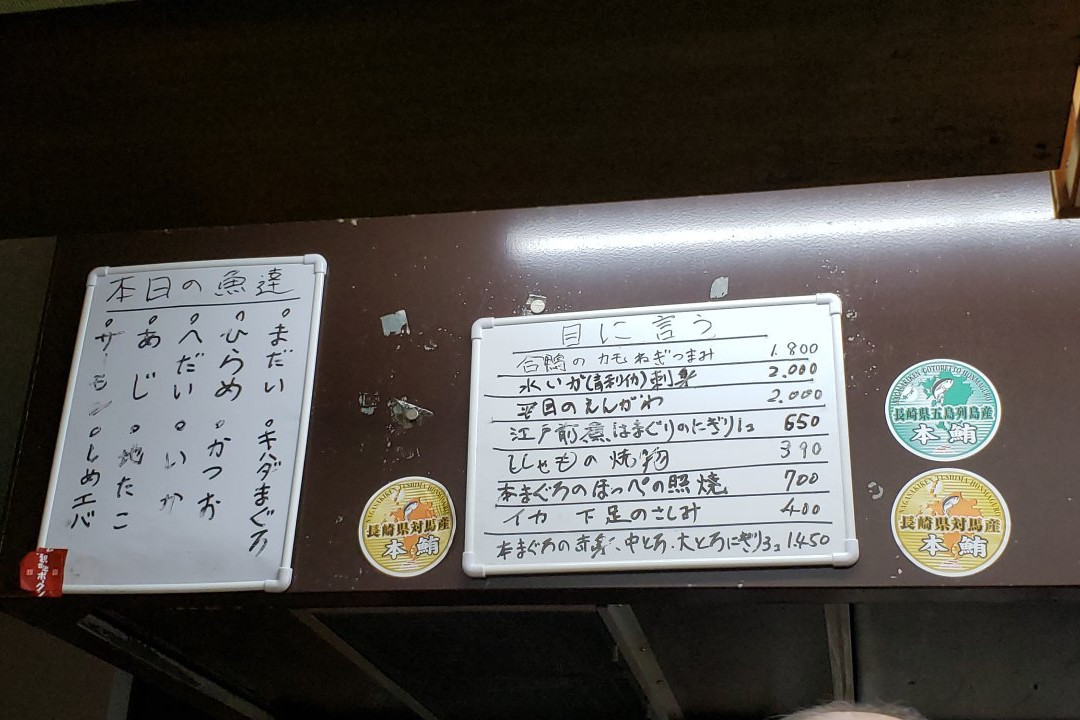 本日の魚達
まだい
キハダまぐろ
ひらめ
かつお
へだい
いか
あじ
地たこ
サーモン
しめエバ
目に言う
合鴨のカモねぎつまみ 1.800
水いか(障泥イカ)刺身 2.000
平目のえんがわ 2.000
江戸前煮はまぐりのにぎり1コ 650
ししゃもの焼物 390
本まぐろのほっぺの照焼 700
イカ 下足のさしみ 400
本まぐろの赤身、中とろ、大とろにぎり3コ 1.450
長崎県対馬産
本鮪
長崎県五島列島産
本鮪
長崎県対馬産
本鮪